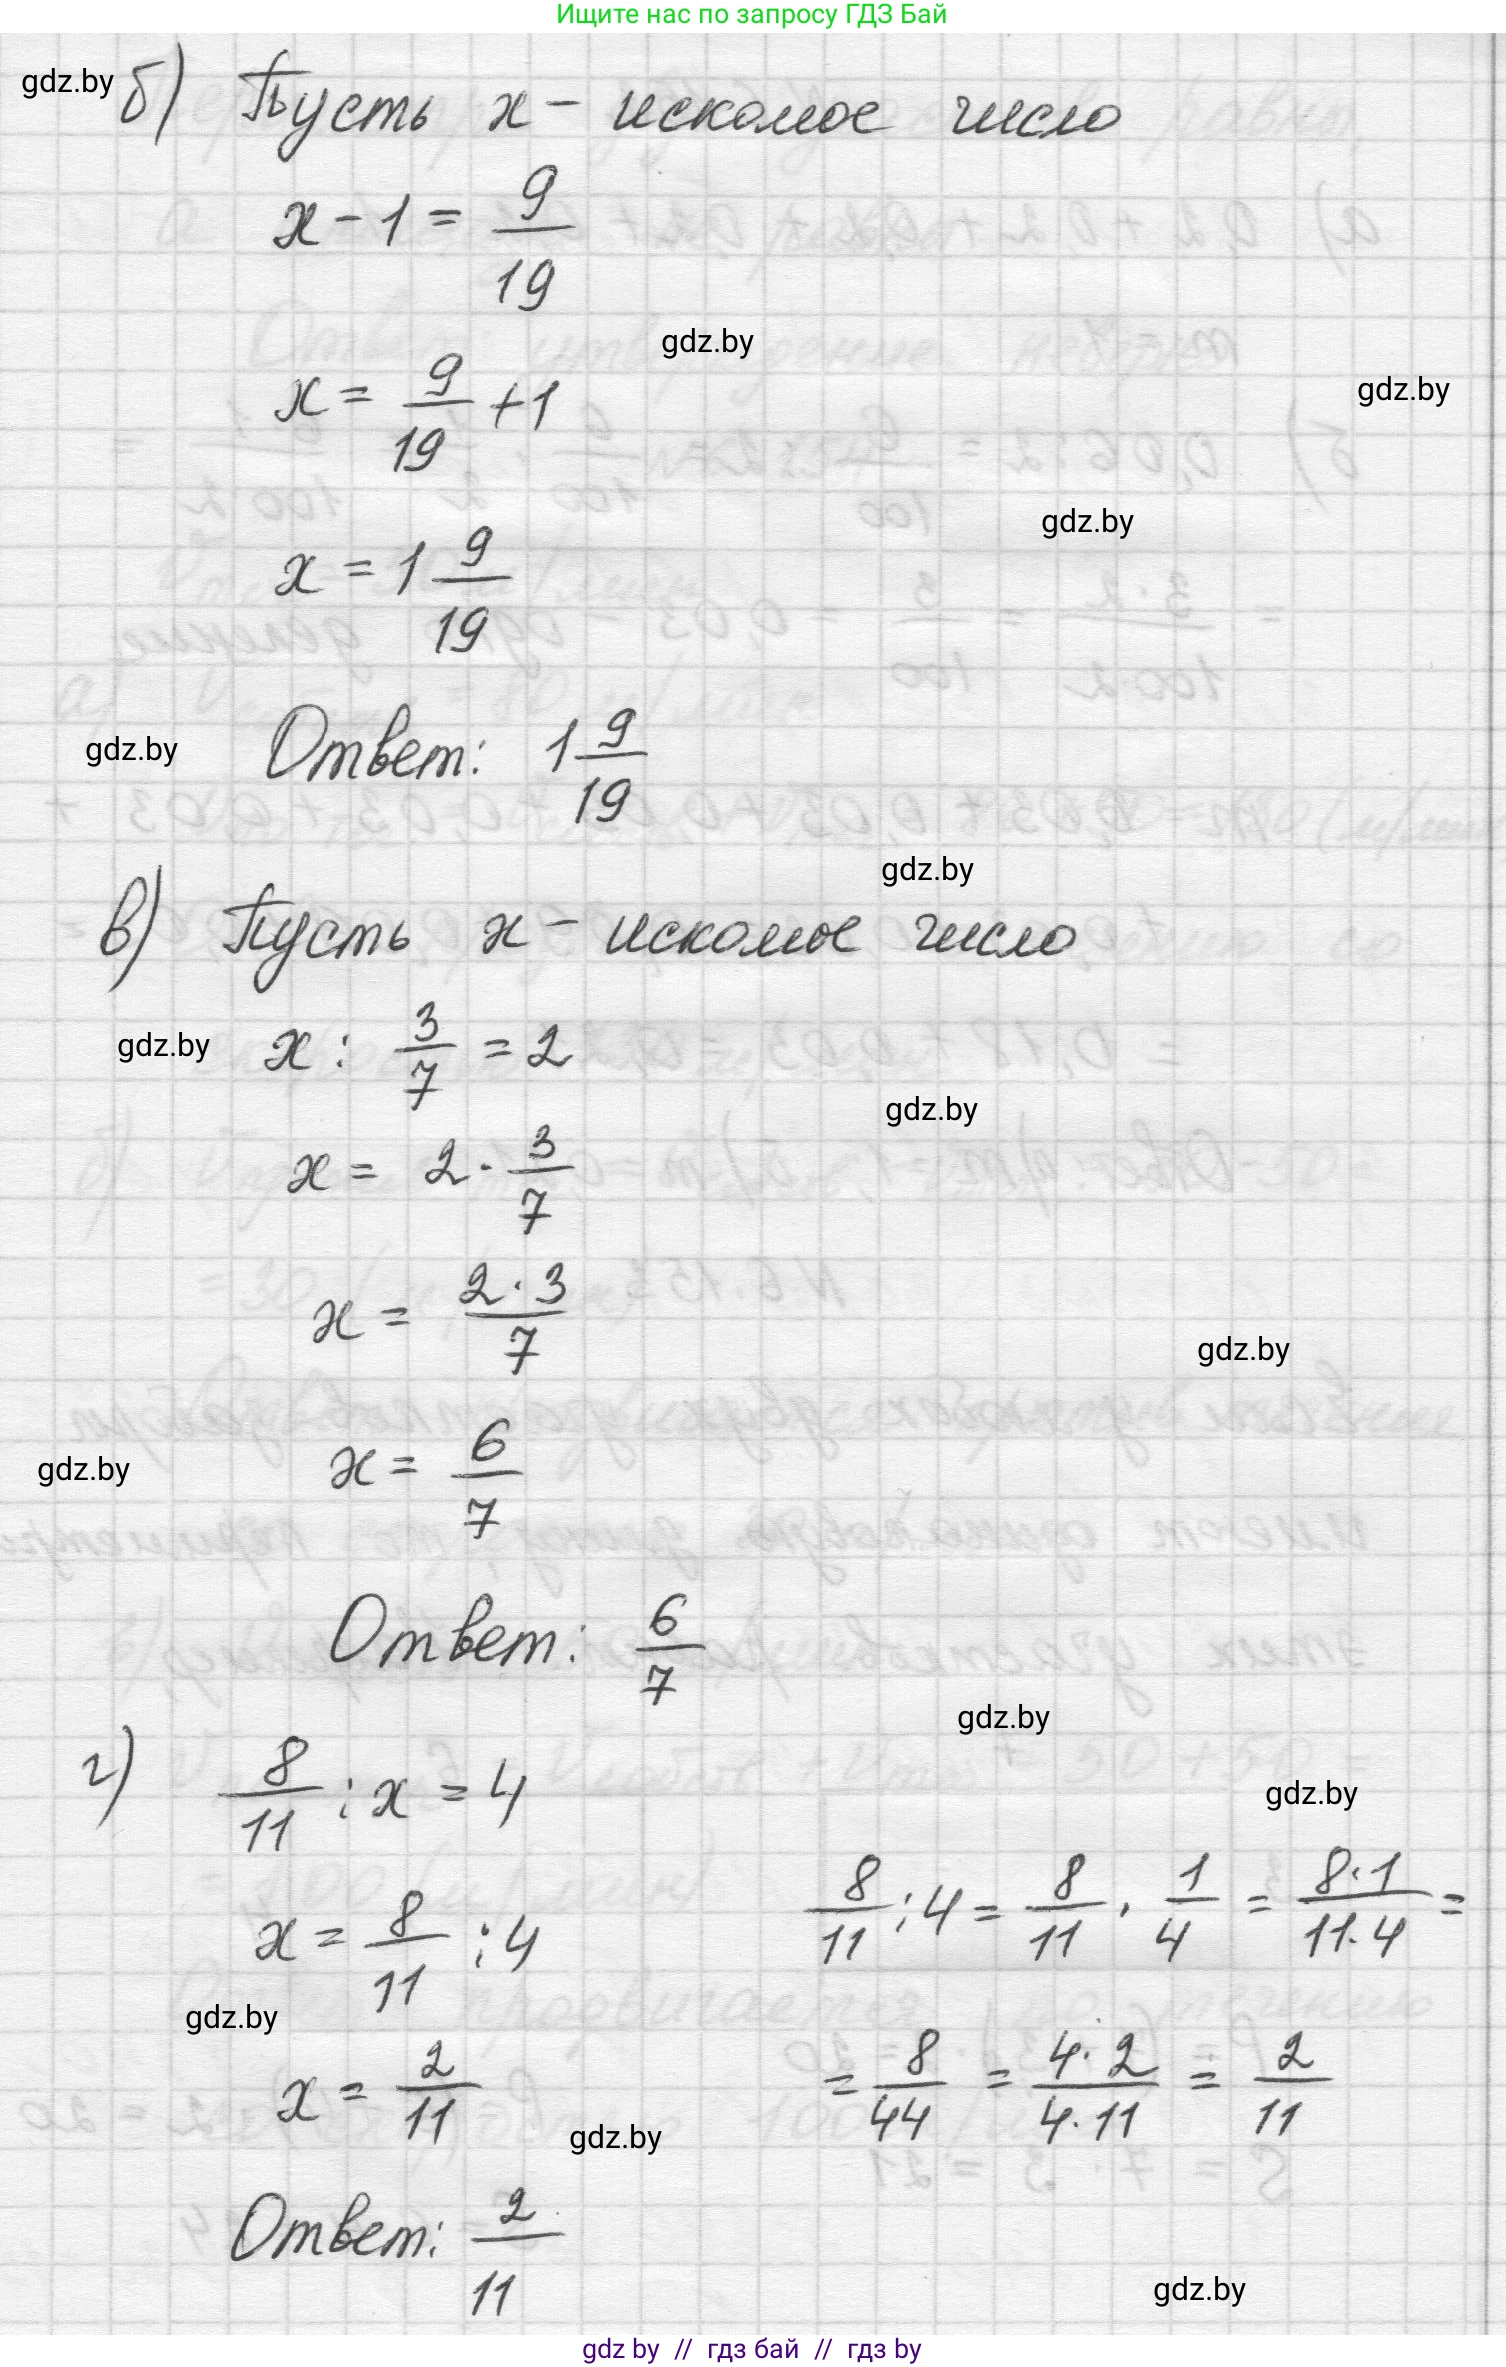 Ищите нас по запросу ГДЗ Бай
gdz.by
б) Пусть x - искомое число
x - 1 = 9/19
gdz.by
x = 9/19 + 1
gdz.by
gdz.by
x = 1 9/19
gdz.by
Ответ: 1 9/19
gdz.by
в) Пусть x - искомое число
gdz.by
x : 3/7 = 2
gdz.by
x = 2 · 3/7
x = 2 · 3/7
gdz.by
gdz.by
x = 6/7
Ответ: 6/7
gdz.by
г) 8/11 : x = 4
gdz.by
x = 8/11 : 4
8/11 : 4 = 8/11 · 1/4 = 8·1/11·4 =
gdz.by
x = 2/11
= 8/44 = 4·2/4·11 = 2/11
gdz.by
Ответ: 2/11
gdz.by
gdz by // гдз бай // гдз by